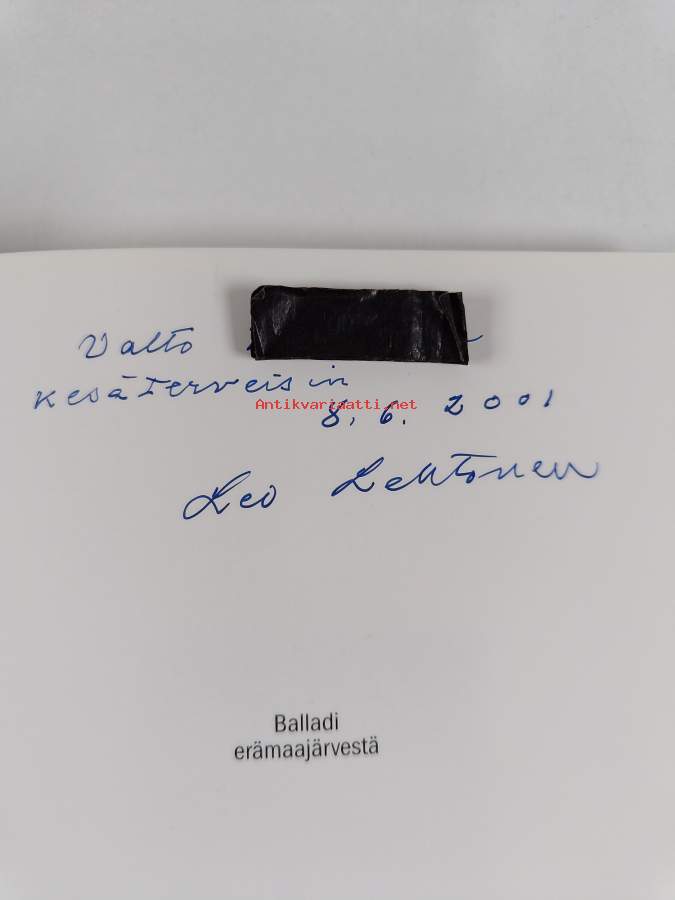 Valto
Kesäterveisin
Antikvariaatti.net
8. 6. 2001
Leo Lehtonen
Balladi
erämaajärvestä